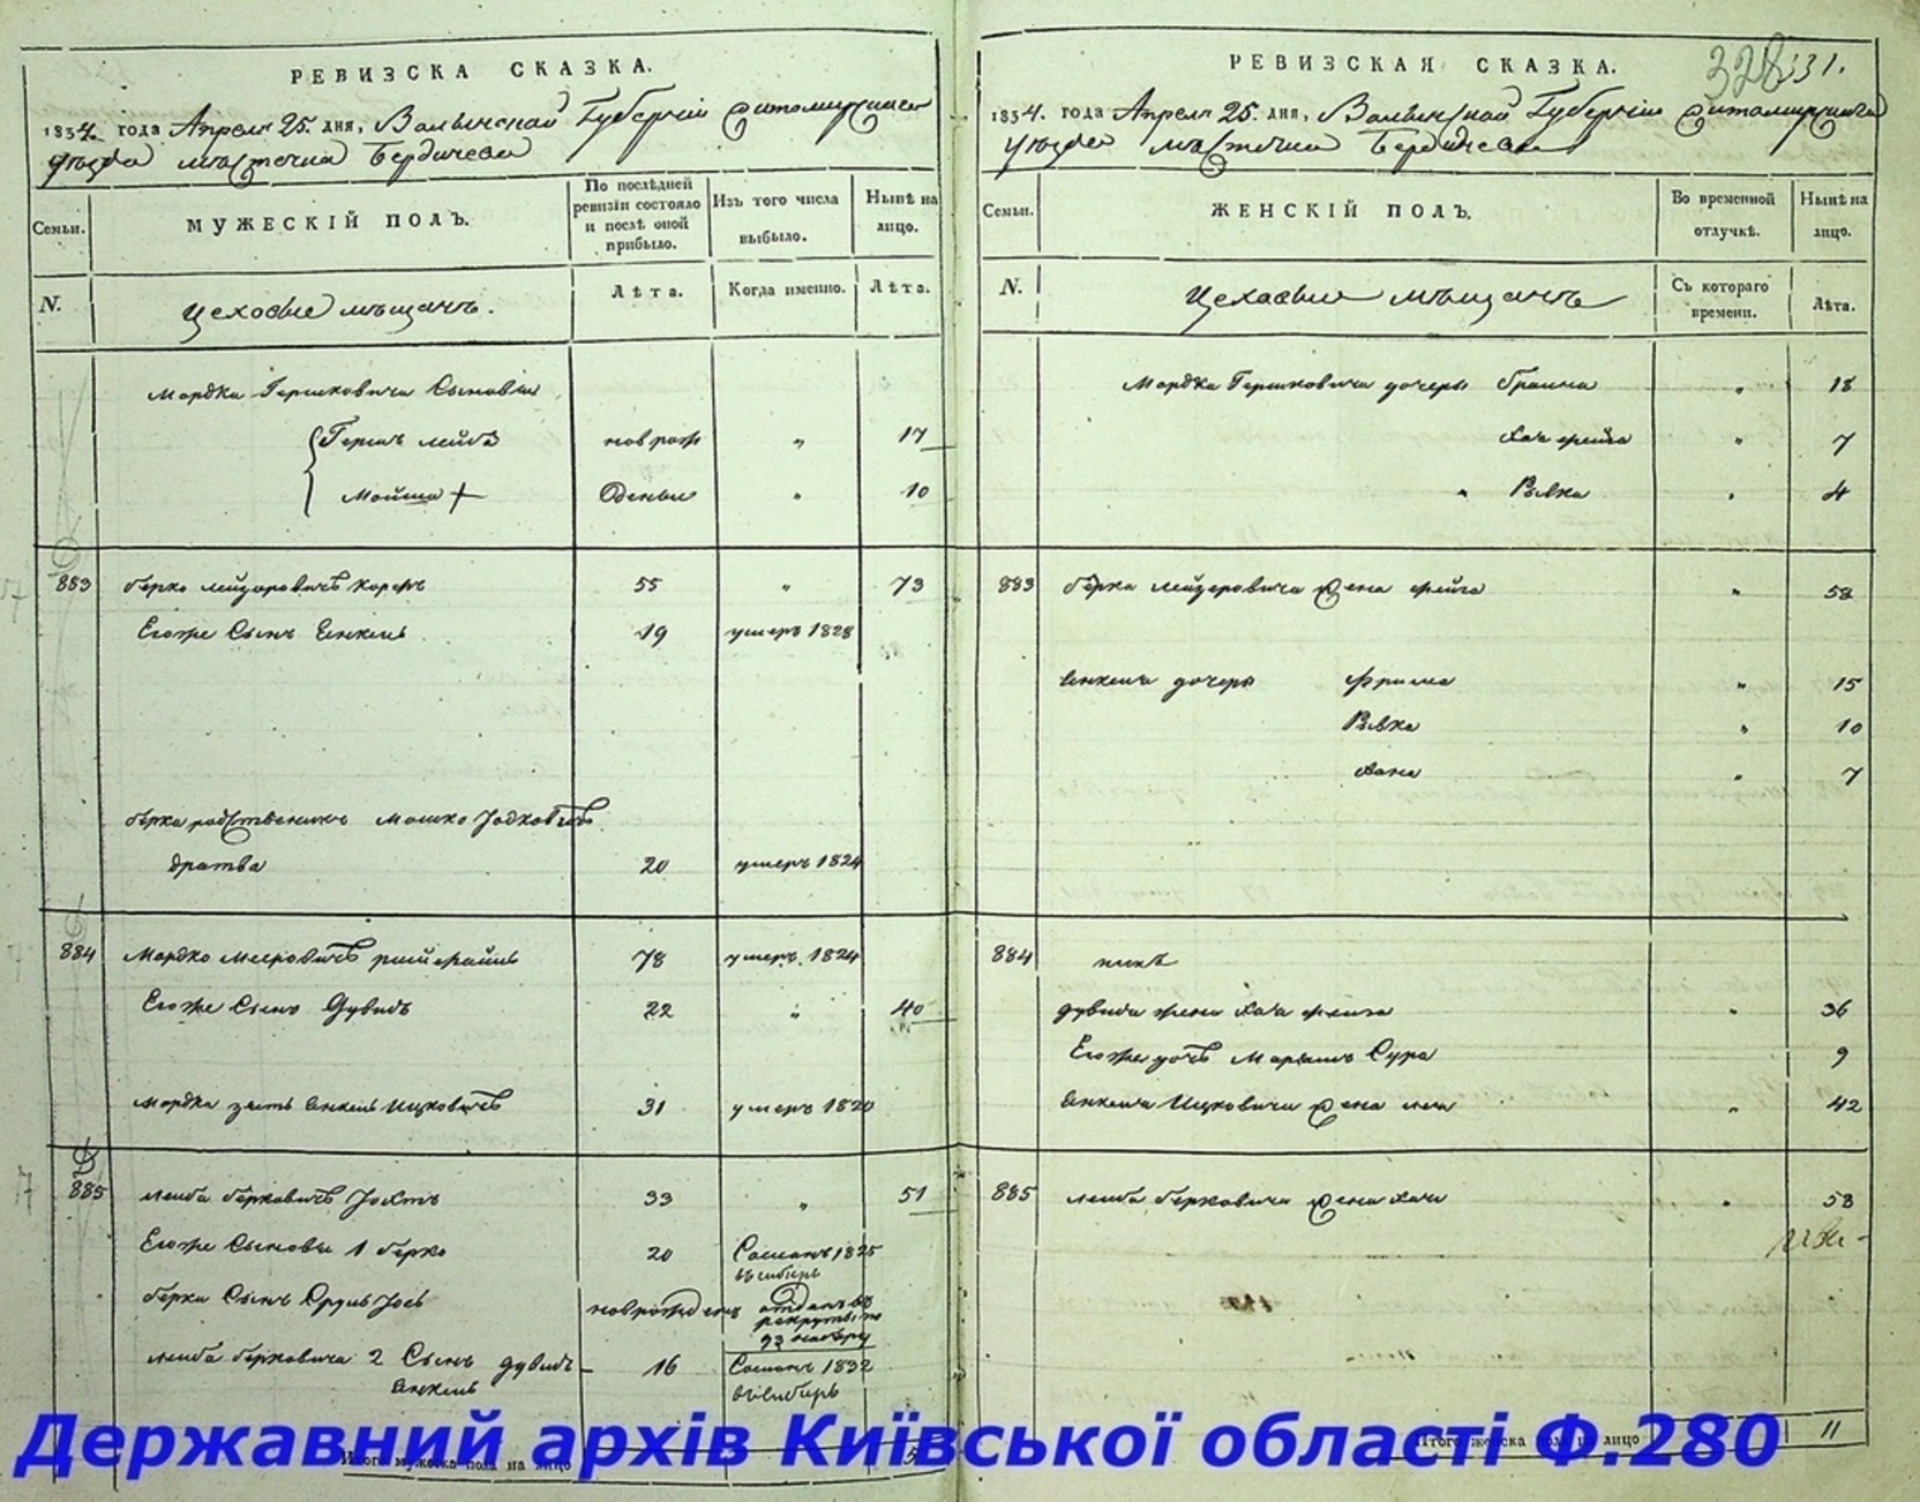 РЕВИЗСКА СКАЗКА.
1834. года Апреля 25. дня, Волынской Губернiи Житомирскаго
уѣзда мѣстечка Бердичева
Семьи.
МУЖЕСКIЙ ПОЛЪ.
По послѣдней ревизiи состояло и послѣ оной прибыло.
Изъ того числа выбыло.
Нынѣ на лицо.
N.
Цеховые мѣщанъ.
Лѣта.
Когда именно.
Лѣта.
Мордка Гершковича Сыновья
Гершъ лейба новрож " 17
Мошко + " 10
883 берко лейзоровичъ корежъ 55 " 73
Егоже Сынъ Енкель 19 умеръ 1828
берка родственникъ Мошко Іодковичъ
дратва 20 умеръ 1824
884 Мордко Мееровичъ 78 умеръ 1824
Егоже Сынъ Дувидъ 22 " 40
Мордка зять Енкель Ицковичъ 31 умеръ 1820
885 лейба берковичъ 33 " 51
Егоже Сыновья 1 берко 20 Сосланъ 1825
въ сибирь
берка Сынъ Сруль Іось новорожденъ отданъ въ
рекруты
лейба берковича 2 Сынъ дувидъ – 16 Сосланъ 1832
Енкель въ сибирь
Итого мужеска пола на лицо 5
328 331.
РЕВИЗСКАЯ СКАЗКА.
1834. года Апреля 25. дня, Волынской Губернiи Житомирскаго
уѣзда мѣстечка Бердичева
Семьи.
ЖЕНСКIЙ ПОЛЪ.
Во временной отлучкѣ.
Нынѣ на лицо.
N.
Цеховые мѣщанъ
Съ котораго времени.
Лѣта.
Мордка Гершковича дочеры браина " 18
Хая фейга " 7
" Ривка " 4
883 берка лейзеровича жена фейга " 52
Енкеля дочеры фрима " 15
Ривка " 10
Хана " 7
884 нѣтъ
дувида жена Хая фейга " 36
Егоже дочъ Марьямъ Сура 9
Енкеля Ицковича жена лея " 42
885 лейба берковича жена Хая " 53
Итого женска пола на лицо 11
Державний архів Київської області Ф.280